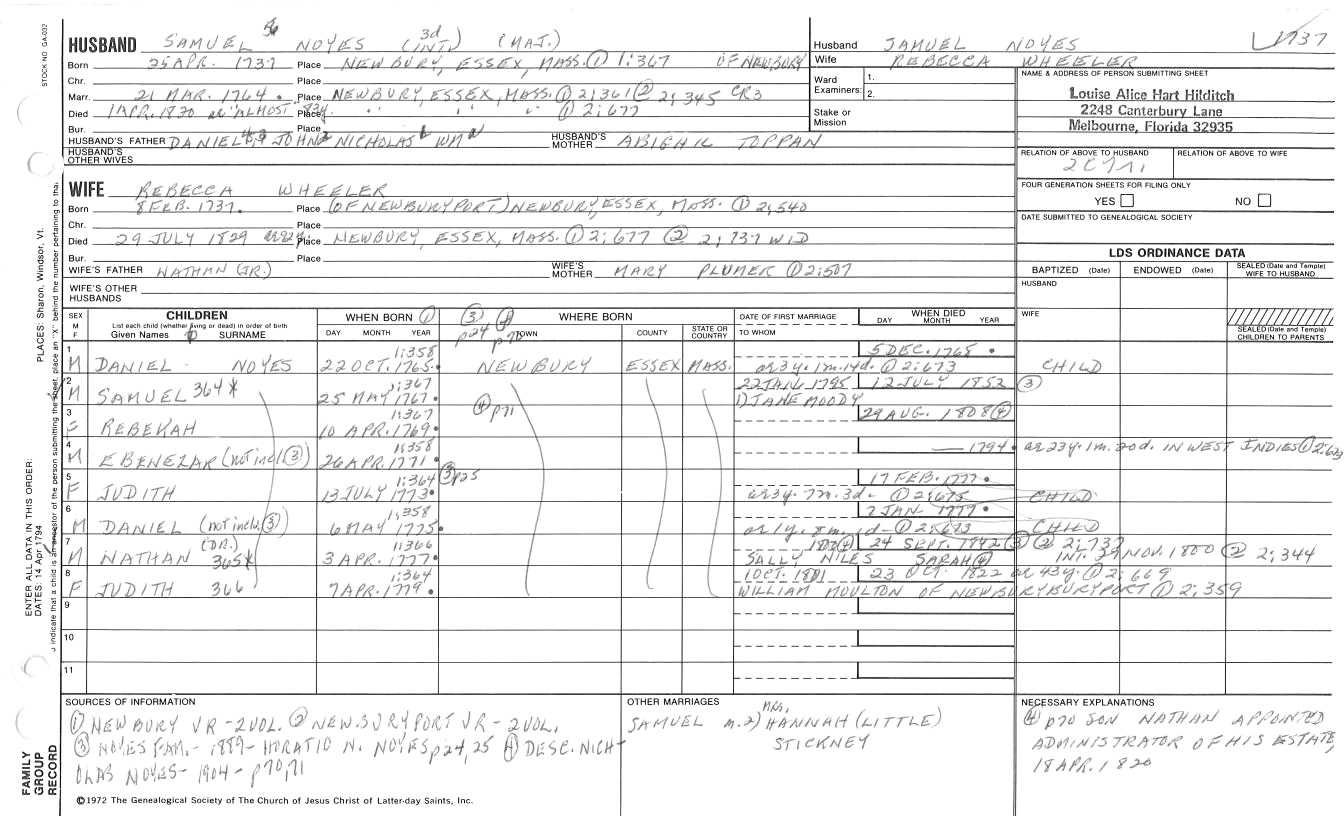 STOCK NO GA-002
HUSBAND SAMUEL NOYES 3d (INT.) (MAJ.)
Born 25 APR. 1737 Place NEWBURY, ESSEX, MASS. ① 1:367 OF NEWBURY
Chr. Place
Marr. 21 MAR. 1764. Place NEWBURY, ESSEX, MASS. ① 2;361 ② 2;345 CR3
Died 1 APR. 1820 ae "ALMOST 83y Place " " " ① 2;677
Bur. Place
HUSBAND'S FATHER DANIEL JOHN NICHOLAS WM HUSBAND'S MOTHER ABIGAIL TOPPAN
HUSBAND'S OTHER WIVES
Husband SAMUEL NOYES 1737
Wife REBECCA WHEELER
Ward Examiners: 1. 2.
Stake or Mission
NAME & ADDRESS OF PERSON SUBMITTING SHEET
Louise Alice Hart Hilditch
2248 Canterbury Lane
Melbourne, Florida 32935
RELATION OF ABOVE TO HUSBAND RELATION OF ABOVE TO WIFE
FOUR GENERATION SHEETS FOR FILING ONLY
YES NO
DATE SUBMITTED TO GENEALOGICAL SOCIETY
WIFE REBECCA WHEELER
Born 8 FEB. 1737. Place (OF NEWBURYPORT) NEWBURY, ESSEX, MASS. ① 2;540
Chr. Place
Died 29 JULY 1829 ae 92y. Place NEWBURY, ESSEX, MASS. ① 2;677 ② 2;737 WID
Bur. Place
WIFE'S FATHER NATHAN (JR.) WIFE'S MOTHER MARY PLUMER ① 2;507
WIFE'S OTHER HUSBANDS
LDS ORDINANCE DATA
BAPTIZED (Date) ENDOWED (Date) SEALED (Date and Temple) WIFE TO HUSBAND
HUSBAND
WIFE
SEALED (Date and Temple) CHILDREN TO PARENTS
SEX M F CHILDREN WHEN BORN ① ③ p24 ④ p70 WHERE BORN DATE OF FIRST MARRIAGE WHEN DIED
List each child (whether living or dead) in order of birth
Given Names SURNAME DAY MONTH YEAR TOWN COUNTY STATE OR COUNTRY TO WHOM DAY MONTH YEAR
1 1:358 5 DEC. 1768 •
M DANIEL NOYES 22 OCT. 1765. NEWBURY ESSEX MASS. ae 3y. 1m. 14d. ① 2;673 CHILD
2 1:367 22 JAN. 1795 12 JULY 1852 ③
M SAMUEL 364 * 25 MAY 1767. 1) JANE MOODY
3 1:367 ④ p71 29 AUG. 1808 ④
F REBEKAH 10 APR. 1769.
4 1:358 1794. ae 23y. 1m. 20d. IN WEST INDIES ① 2;673
M EBENEZAR (not incl. ③) 26 APR. 1771.
5 1:364 ③ p25 17 FEB. 1777.
F JUDITH 13 JULY 1773. ae 3y. 7m. 3d. ① 2;675 CHILD
6 1:358 7 JAN. 1777.
M DANIEL (not incl. ③) 6 MAY 1775. ae 1y. 8m. 1d. ① 2;673 CHILD
7 (DR.) 1:366 24 SEPT. 1842 ③ ② 2;737
M NATHAN 365 * 3 APR. 1777. SALLY NILES SARAH ④ INT. 29 NOV. 1800 ② 2;344
8 1:364 1 OCT. 1801 23 OCT. 1822 ae 43y. ① 2;669
F JUDITH 366 7 APR. 1779. WILLIAM MOULTON OF NEWBURYBURYPORT ① 2;359
9
10
11
SOURCES OF INFORMATION
① NEWBURY VR - 2 VOL. ② NEWBURYPORT VR - 2 VOL.
③ NOYES FAM. - 1889 - HORATIO N. NOYES p24, 25 ④ DESC. NICH-
OLAS NOYES - 1904 - p70, 71
OTHER MARRIAGES
SAMUEL m. 2) MRS. HANNAH (LITTLE)
STICKNEY
NECESSARY EXPLANATIONS
④ p70 SON NATHAN APPOINTED
ADMINISTRATOR OF HIS ESTATE,
18 APR. 1820
©1972 The Genealogical Society of The Church of Jesus Christ of Latter-day Saints, Inc.
FAMILY GROUP RECORD
ENTER ALL DATA IN THIS ORDER:
DATES: 14 Apr 1794
PLACES: Sharon, Windsor, Vt.
indicate that a child is an ancestor of the person submitting the sheet, place an "X" behind the number pertaining to that